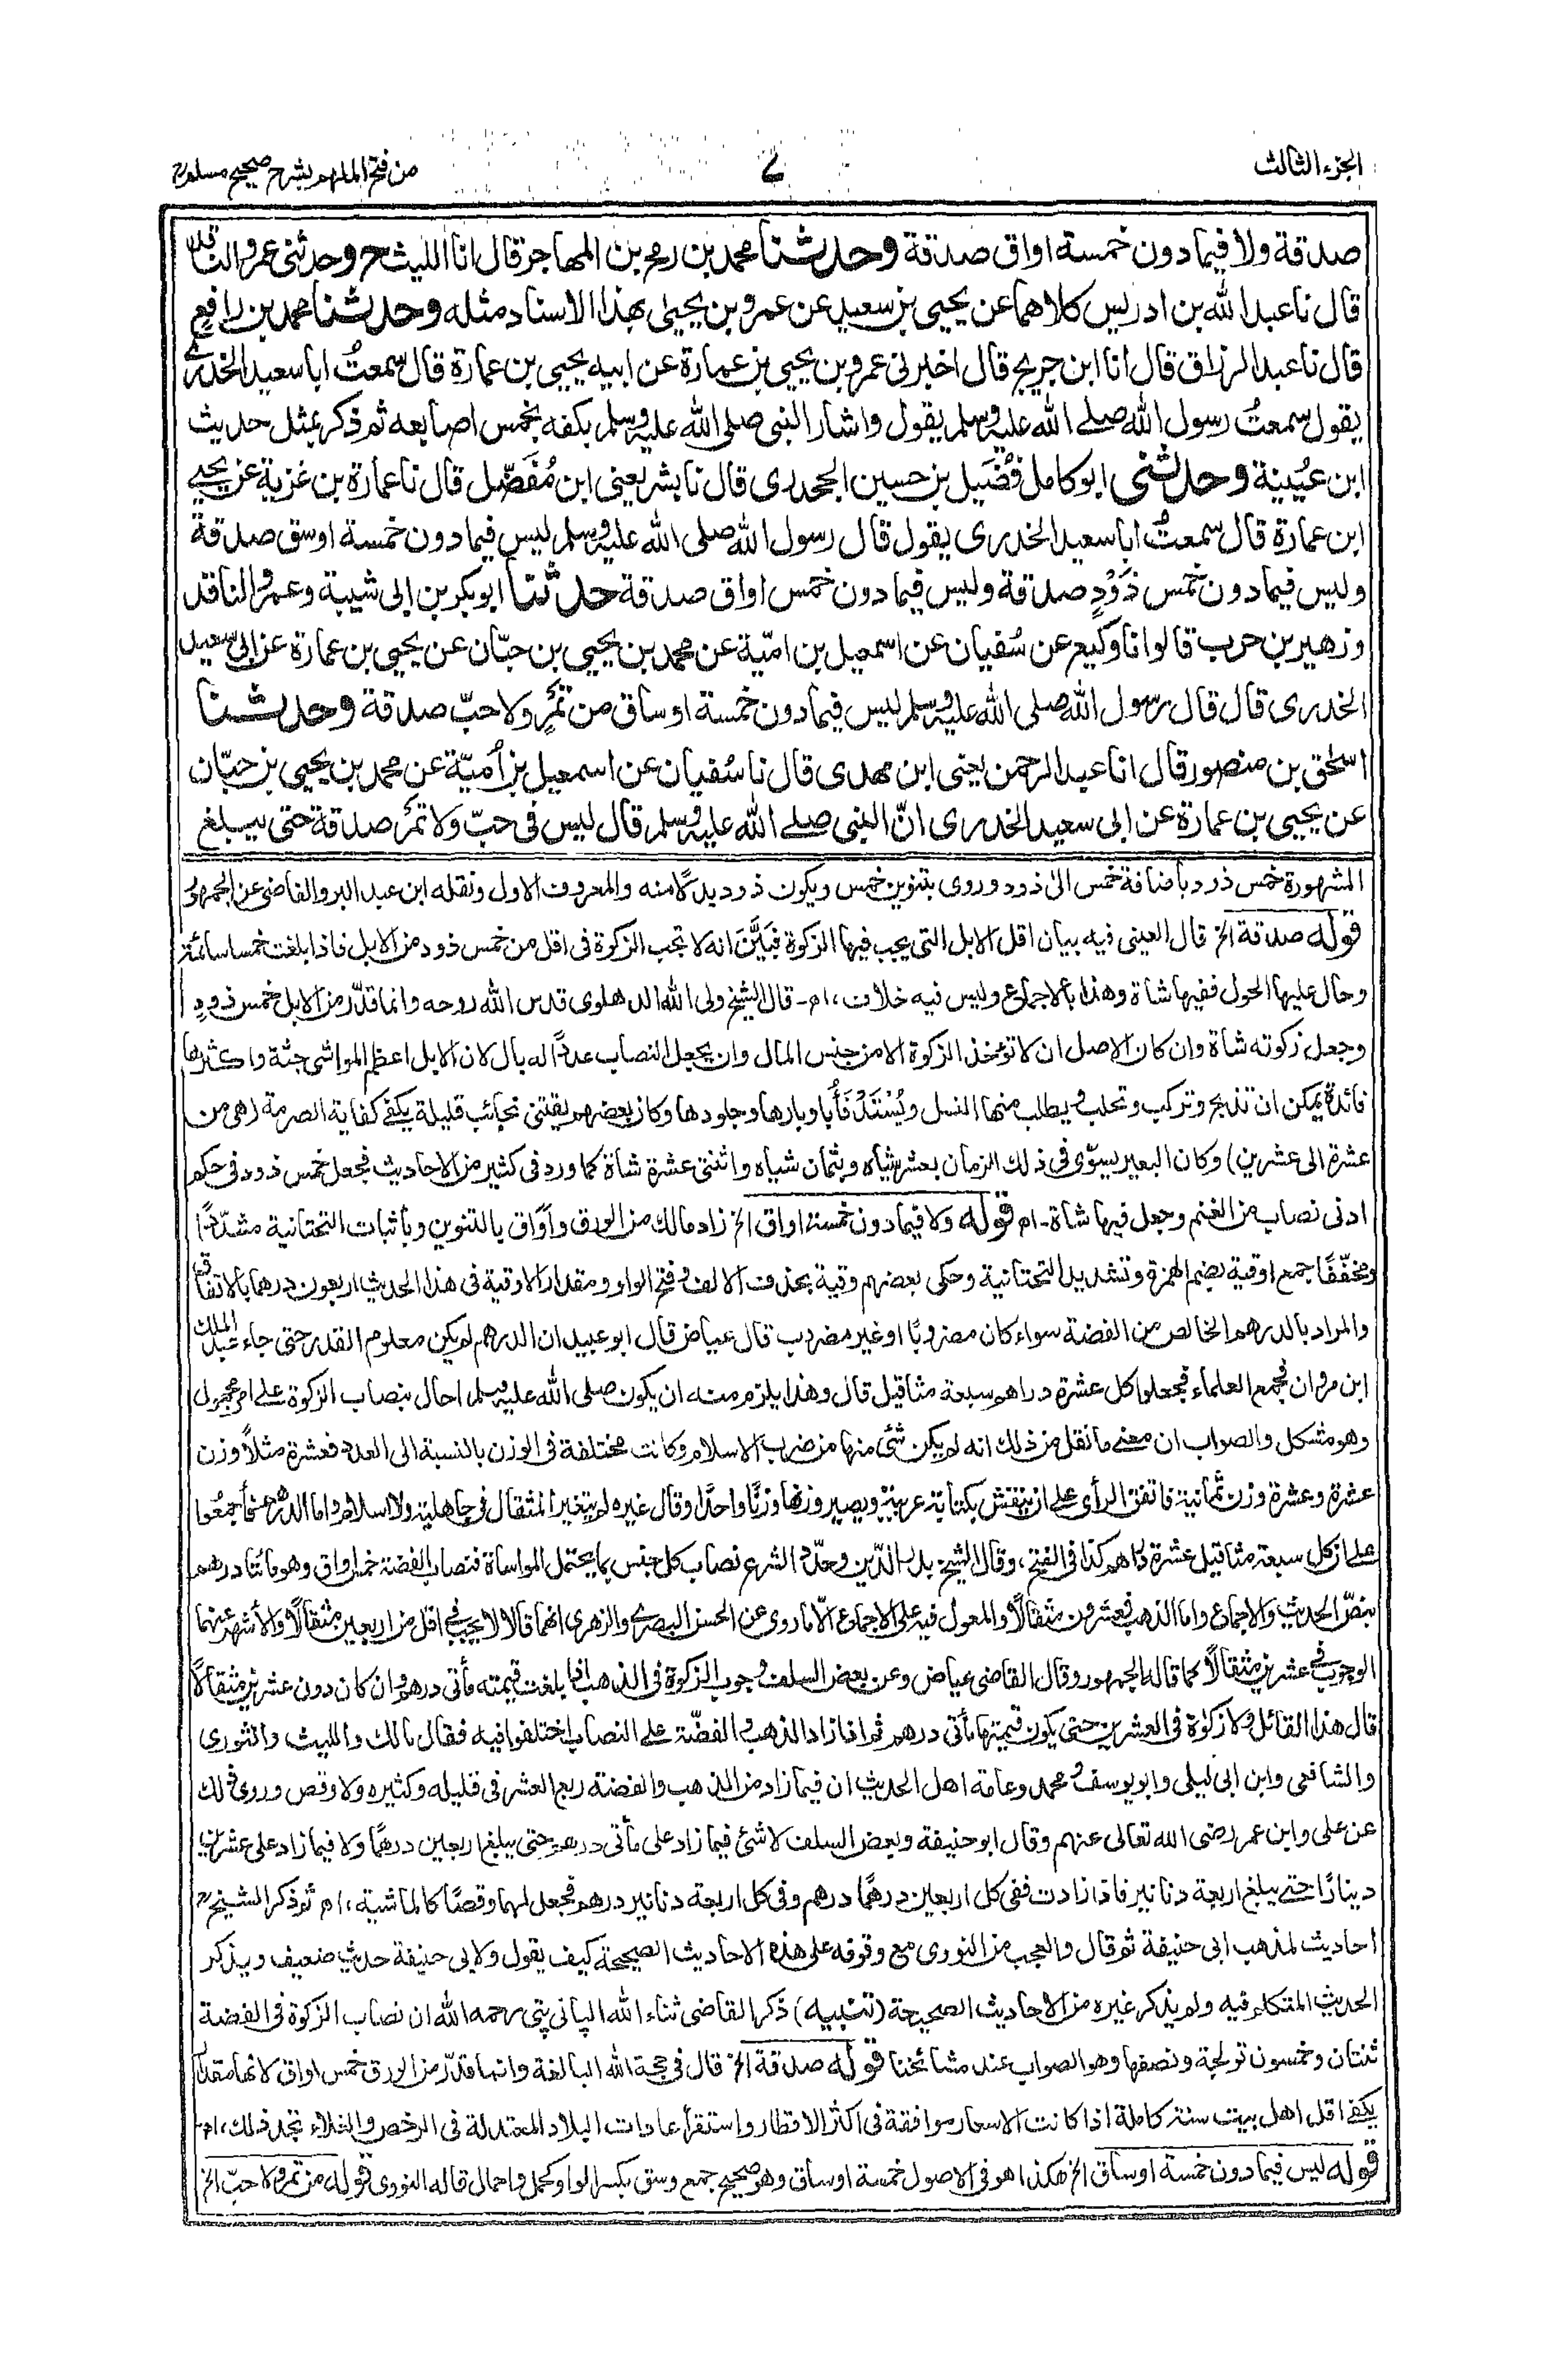 الجزء الثالث
٤
من فتح الملهم بشرح صحيح مسلم
صدقة ولا فيما دون خمسة اواق صدقة وحدثنا محمد بن رمح بن المهاجر قال انا الليث ح وحدثنى عمرو الناقد
قال نا عبد الله بن ادريس كلاهما عن يحيى بن سعيد عن عمرو بن يحيىٰ بهذا الاسناد مثله وحدثنا محمد بن رافع
قال نا عبد الرزاق قال انا ابن جريج قال اخبرنى عمرو بن يحيى بن عمارة عن ابيه يحيى بن عمارة قال سمعتُ ابا سعيد الخدرى
يقول سمعتُ رسول الله صلے الله عليه وسلم يقول واشار النبى صلى الله عليه وسلم بكفه بخمس اصابعه ثم ذكر بمثل حديث
ابن عُيَينة وحدثنى ابو كامل فُضَيل بن حسين الجحدرى قال نا بشر يعنى ابن مُفَضّل قال نا عمارة بن غزية عن يحيى
ابن عمارة قال سمعتُ ابا سعيد الخدرى يقول قال رسول الله صلى الله عليه وسلم ليس فيما دون خمسة اوسق صدقةٌ
وليس فيما دون خمس ذَوْدٍ صدقة وليس فيما دون خمس اواق صدقة حدثنا ابو بكر بن ابى شيبة وعمرو الناقد
وزهير بن حرب قالوا نا وكيع عن سُفيان عن اسمعيل بن اميّة عن محمد بن يحيى بن حبّان عن يحيى بن عمارة عن ابى سعيد
الخدرى قال قال رسول الله صلى الله عليه وسلم ليس فيما دون خمسة اوساق من تمرٍ ولا حبّ صدقة وحدثنا
اسحٰق بن منصور قال انا عبد الرحمن يعنى ابن مهدى قال نا سُفيان عن اسمعيل بن اُميّة عن محمد بن يحيى بن حبّان
عن يحيى بن عمارة عن ابى سعيد الخدرى انّ النبى صلے الله عليه وسلم قال ليس فى حبّ ولا تمر صدقة حتى يبلغ
المشهورة خمس ذود باضافة خمس الىٰ ذود وروى بتنوين خمس ويكون ذود بدلًا منه والمعروف الاول ونقله ابن عبد البر والقاضى عن الجمهور
قوله صدقة الخ قال العينى فيه بيان اقل الابل التى يجب فيها الزكوة فبَيَّنَ انه لا تجب الزكوة فى اقل من خمس ذود من الابل فاذا بلغت خمسا سائمة
وحال عليها الحول ففيها شاة وهذا بالاجماع وليس فيه خلاف، اھ- قال الشيخ ولى الله الدهلوى قدس الله روحه وانما قدّر من الابل خمس ذودٍ
وجعل زكوته شاة وان كان الاصل ان لا تؤخذ الزكوة الا من جنس المال وان يجعل النصاب عددًا له بال لان الابل اعظم المواشى جثة واكثرها
فائدة يمكن ان تذبح وتركب وتحلب ويطلب منها النسل ويُسْتَدْفَأُ باوبارها وجلودها وكان بعضهم يقتنى نجائب قليلة يكفى كفاية الصرمة (هى من
عشرة الى عشرين) وكان البعير يسوّى فى ذلك الزمان بعشر شياه وبثمان شياه واثنتى عشرة شاة كما ورد فى كثير من الاحاديث فجعل خمس ذود فى حكم
ادنى نصاب من الغنم وجعل فيها شاة- اھ قوله ولا فيما دون خمسة اواق الخ زاد مالك من الورق وأوَاق بالتنوين وباثبات التحتانية مشدّدًا
ومخفّفًا جمع اوقية بضم الهمزة وتشديد التحتانية وحكى بعضهم وقية بحذف الالف وفتح الواو ومقدار الاوقية فى هذا الحديث اربعون درهما بالاتفاق
والمراد بالدرهم الخالص من الفضة سواء كان مضروبًا او غير مضروب قال عياض قال ابو عبيد ان الدرهم لم يكن معلوم القدر حتى جاء عبد الملك
ابن مروان فجمع العلماء فجعلوا كل عشرة دراهم سبعة مثاقيل قال وهذا يلزم منه ان يكون صلى الله عليه وسلم احال بنصاب الزكوة على امر مجهول
وهو مشكل والصواب ان معنى ما نقل من ذلك انه لم يكن شئ منها من ضرب الاسلام وكانت مختلفة فى الوزن بالنسبة الى العدد فعشرة مثلًا وزن
عشرة وعشرة وزن ثمانية فاتفق الرأى على ان ينقش بكتابة عربية ويصير وزنها وزنًا واحدًا وقال غيره لم يتغير المثقال فى جاهلية ولا اسلام واما الدرهم فاجمعوا
على ان كل سبعة مثاقيل عشرة دراهم كذا فى الفتح، وقال الشيخ بدر الدّين وحدّد الشرع نصاب كل جنس بما يحتمل المواساة فنصاب الفضة خمس اواق وهو مائتا درهم
بنصّ الحديث والاجماع واما الذهب فعشرون مثقالًا والمعول فيه على الاجماع الّا ما روى عن الحسن البصرى والزهرى انهما قالا لا يجب فى اقل من اربعين مثقالًا والأشهر عنهما
الوجوب فى عشرين مثقالًا كما قاله الجمهور وقال القاضى عياض وعن بعض السلف وجوب الزكوة فى الذهب اذا بلغت قيمته مأتى درهم وان كان دون عشرين مثقالًا
قال هذا القائل ولا زكوة فى العشرين حتى يكون قيمتها مأتى درهم ثم اذا زاد الذهب والفضّة على النصاب اختلفوا فيه فقال مالك والليث والثورى
والشافعى وابن ابى ليلى وابو يوسف ومحمد وعامة اهل الحديث ان فيما زاد من الذهب والفضة ربع العشر فى قليله وكثيره ولا وقص وروى ذلك
عن على وابن عمر رضى الله تعالى عنهم وقال ابو حنيفة وبعض السلف لا شئ فيما زاد على مأتى درهم حتى يبلغ اربعين درهمًا ولا فيما زاد على عشرين
دينارًا حتى يبلغ اربعة دنانير فاذا زادت ففى كل اربعين درهمًا درهم وفى كل اربعة دنانير درهم فجعل لهما وقصًا كالماشية، اھ ثم ذكر الشيخ
احاديث لمذهب ابى حنيفة ثم قال والعجب من النورى مع وقوفه على هذه الاحاديث الصحيحة كيف يقول ولابى حنيفة حديث ضعيف ويذكر
الحديث المتكلم فيه ولم يذكر غيره من الاحاديث الصحيحة (تنبيه) ذكر القاضى ثناء الله الپانى پتى رحمه الله ان نصاب الزكوة فى الفضة
ثنتان وخمسون تولجة ونصفها وهو الصواب عند مشائخنا قوله صدقة الخ قال فى حجة الله البالغة وانما قدّر من الورق خمس اواق لانها مقدار
يكفى اقل اهل بيت سنة كاملة اذا كانت الاسعار موافقة فى اكثر الاقطار واستقرأ عادات البلاد المعتدلة فى الرخص والغلاء تجد ذلك، اھ-
قوله ليس فيما دون خمسة اوساق الخ هكذا هو فى الاصول خمسة اوساق وهو صحيح جمع وسق بكسر الواو كحمل واحمال قاله النووى قوله من تمر ولا حبّ الخ